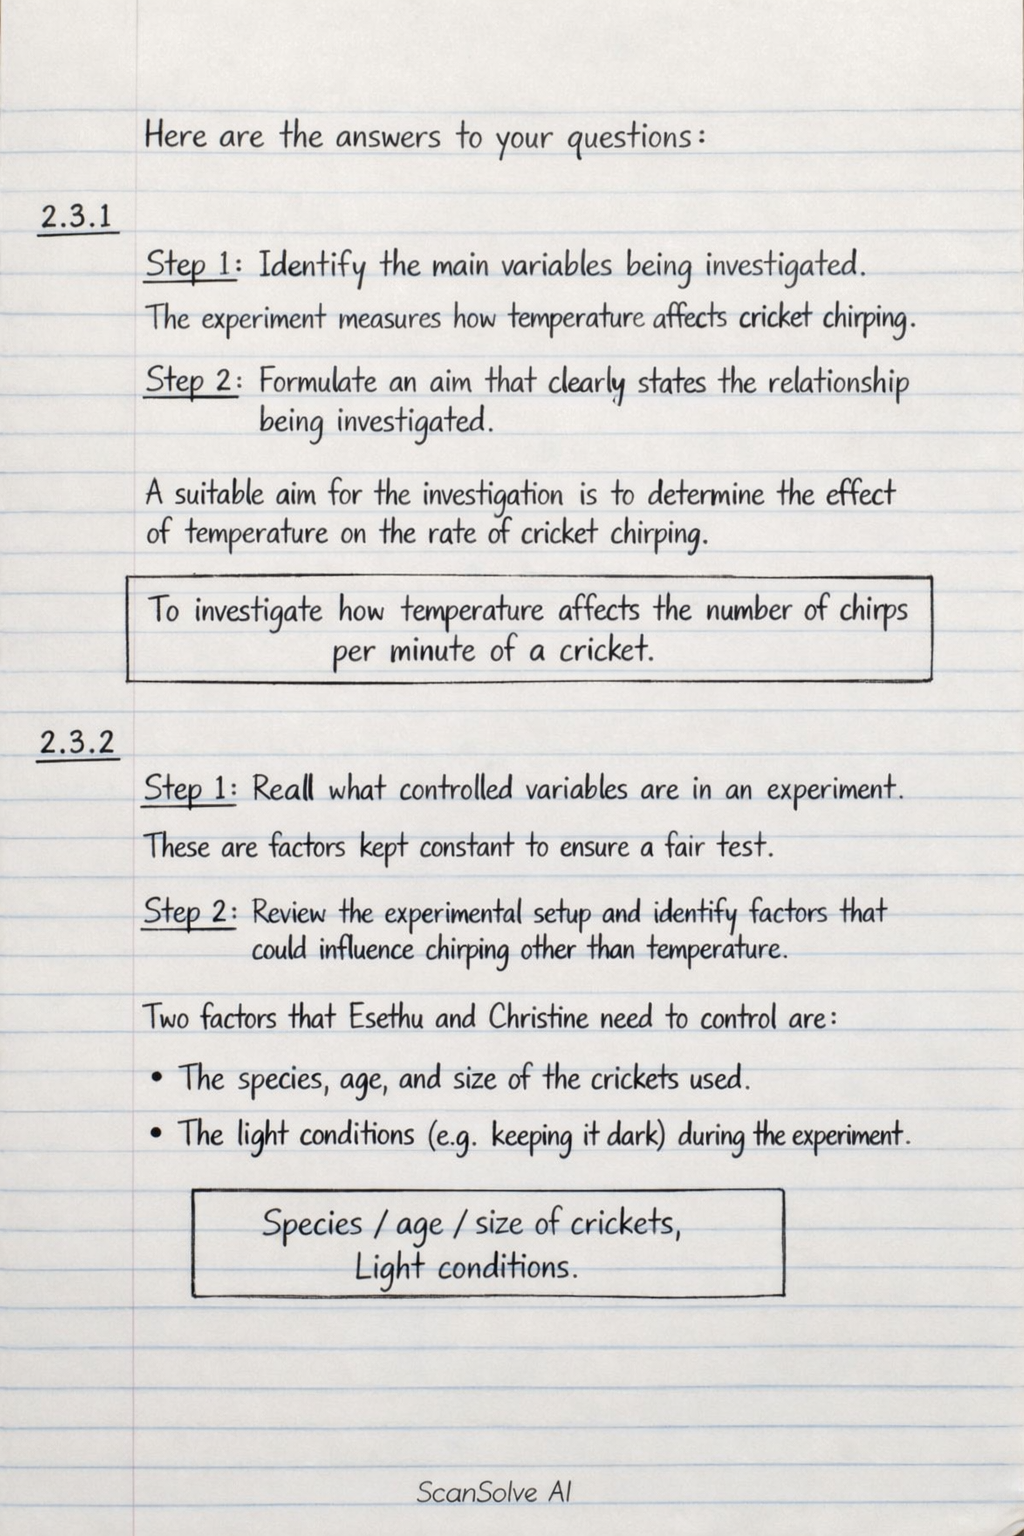 Here are the answers to your questions:
2.3.1
Step 1: Identify the main variables being investigated.
The experiment measures how temperature affects cricket chirping.
Step 2: Formulate an aim that clearly states the relationship
being investigated.
A suitable aim for the investigation is to determine the effect
of temperature on the rate of cricket chirping.
To investigate how temperature affects the number of chirps
per minute of a cricket.
2.3.2
Step 1: Reall what controlled variables are in an experiment.
These are factors kept constant to ensure a fair test.
Step 2: Review the experimental setup and identify factors that
could influence chirping other than temperature.
Two factors that Esethu and Christine need to control are:
• The species, age, and size of the crickets used.
• The light conditions (e.g. keeping it dark) during the experiment.
Species / age / size of crickets,
Light conditions.
ScanSolve AI